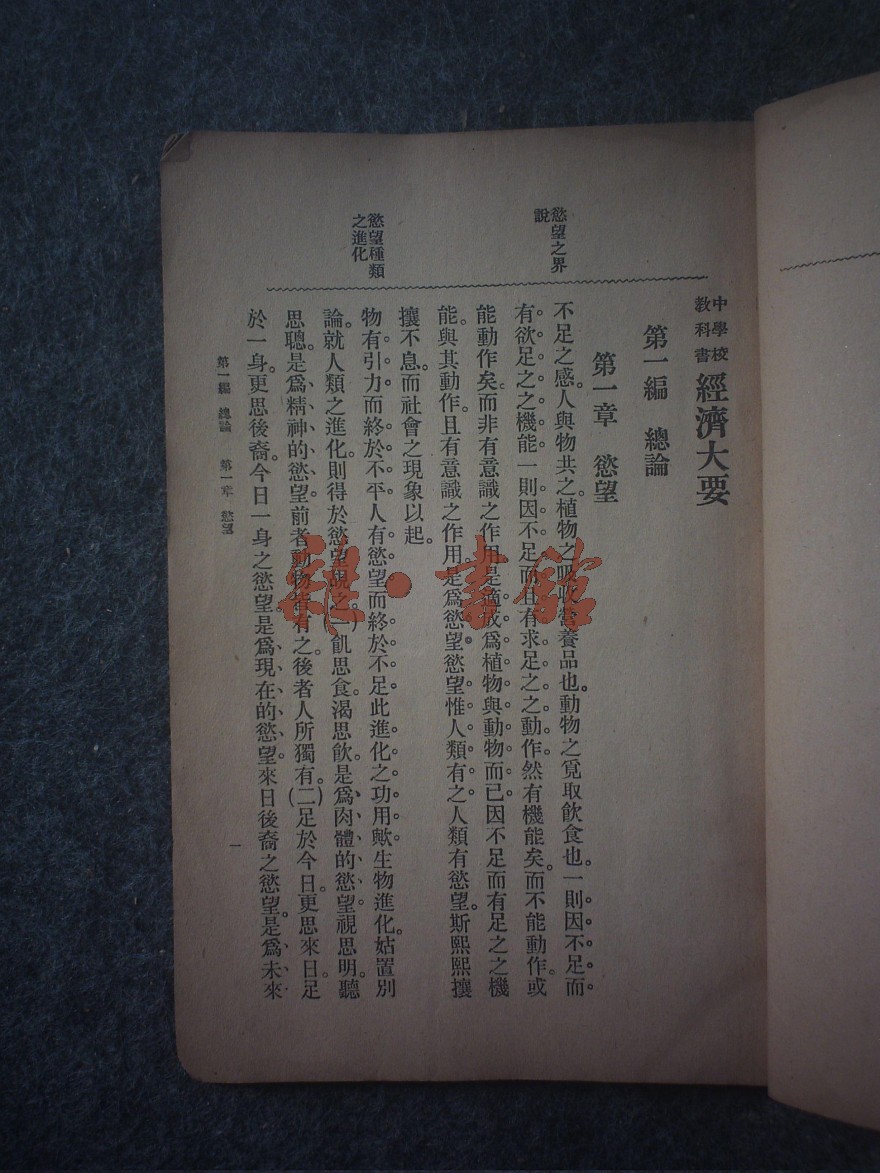 中學校
教科書
經濟大要
第一編　總論
第一章　慾望
慾望之界
說
不足之感。人與物共之。植物之吸收營養品也。動物之覓取飲食也。一則因不足而
有欲足之之機能一則因不足而且有求足之之動作然有機能矣。而不能動作。或
能動作矣。而非有意識之作用是適成爲植物與動物而已因不足而有足之之機
能。與其動作。且有意識之作用。是爲慾望慾望惟人類有之人類有慾望。斯熙熙攘
攘不息。而社會之現象以起。
慾望種類
之進化
物有引力而終於不平人有慾望而終於不足此進化之功用歟生物進化。姑置別
論。就人類之進化。則得於慾望覘之。(一)飢思食。渴思飲。是爲肉體的慾望視思明。聽
思聰。是爲精神的慾望。前者動物皆有之。後者人所獨有。(二)足於今日。更思來日。足
於一身。更思後裔。今日一身之慾望。是爲現在的慾望來日後裔之慾望。是爲未來
第一編　總論　第一章　慾望
一
雜·書館